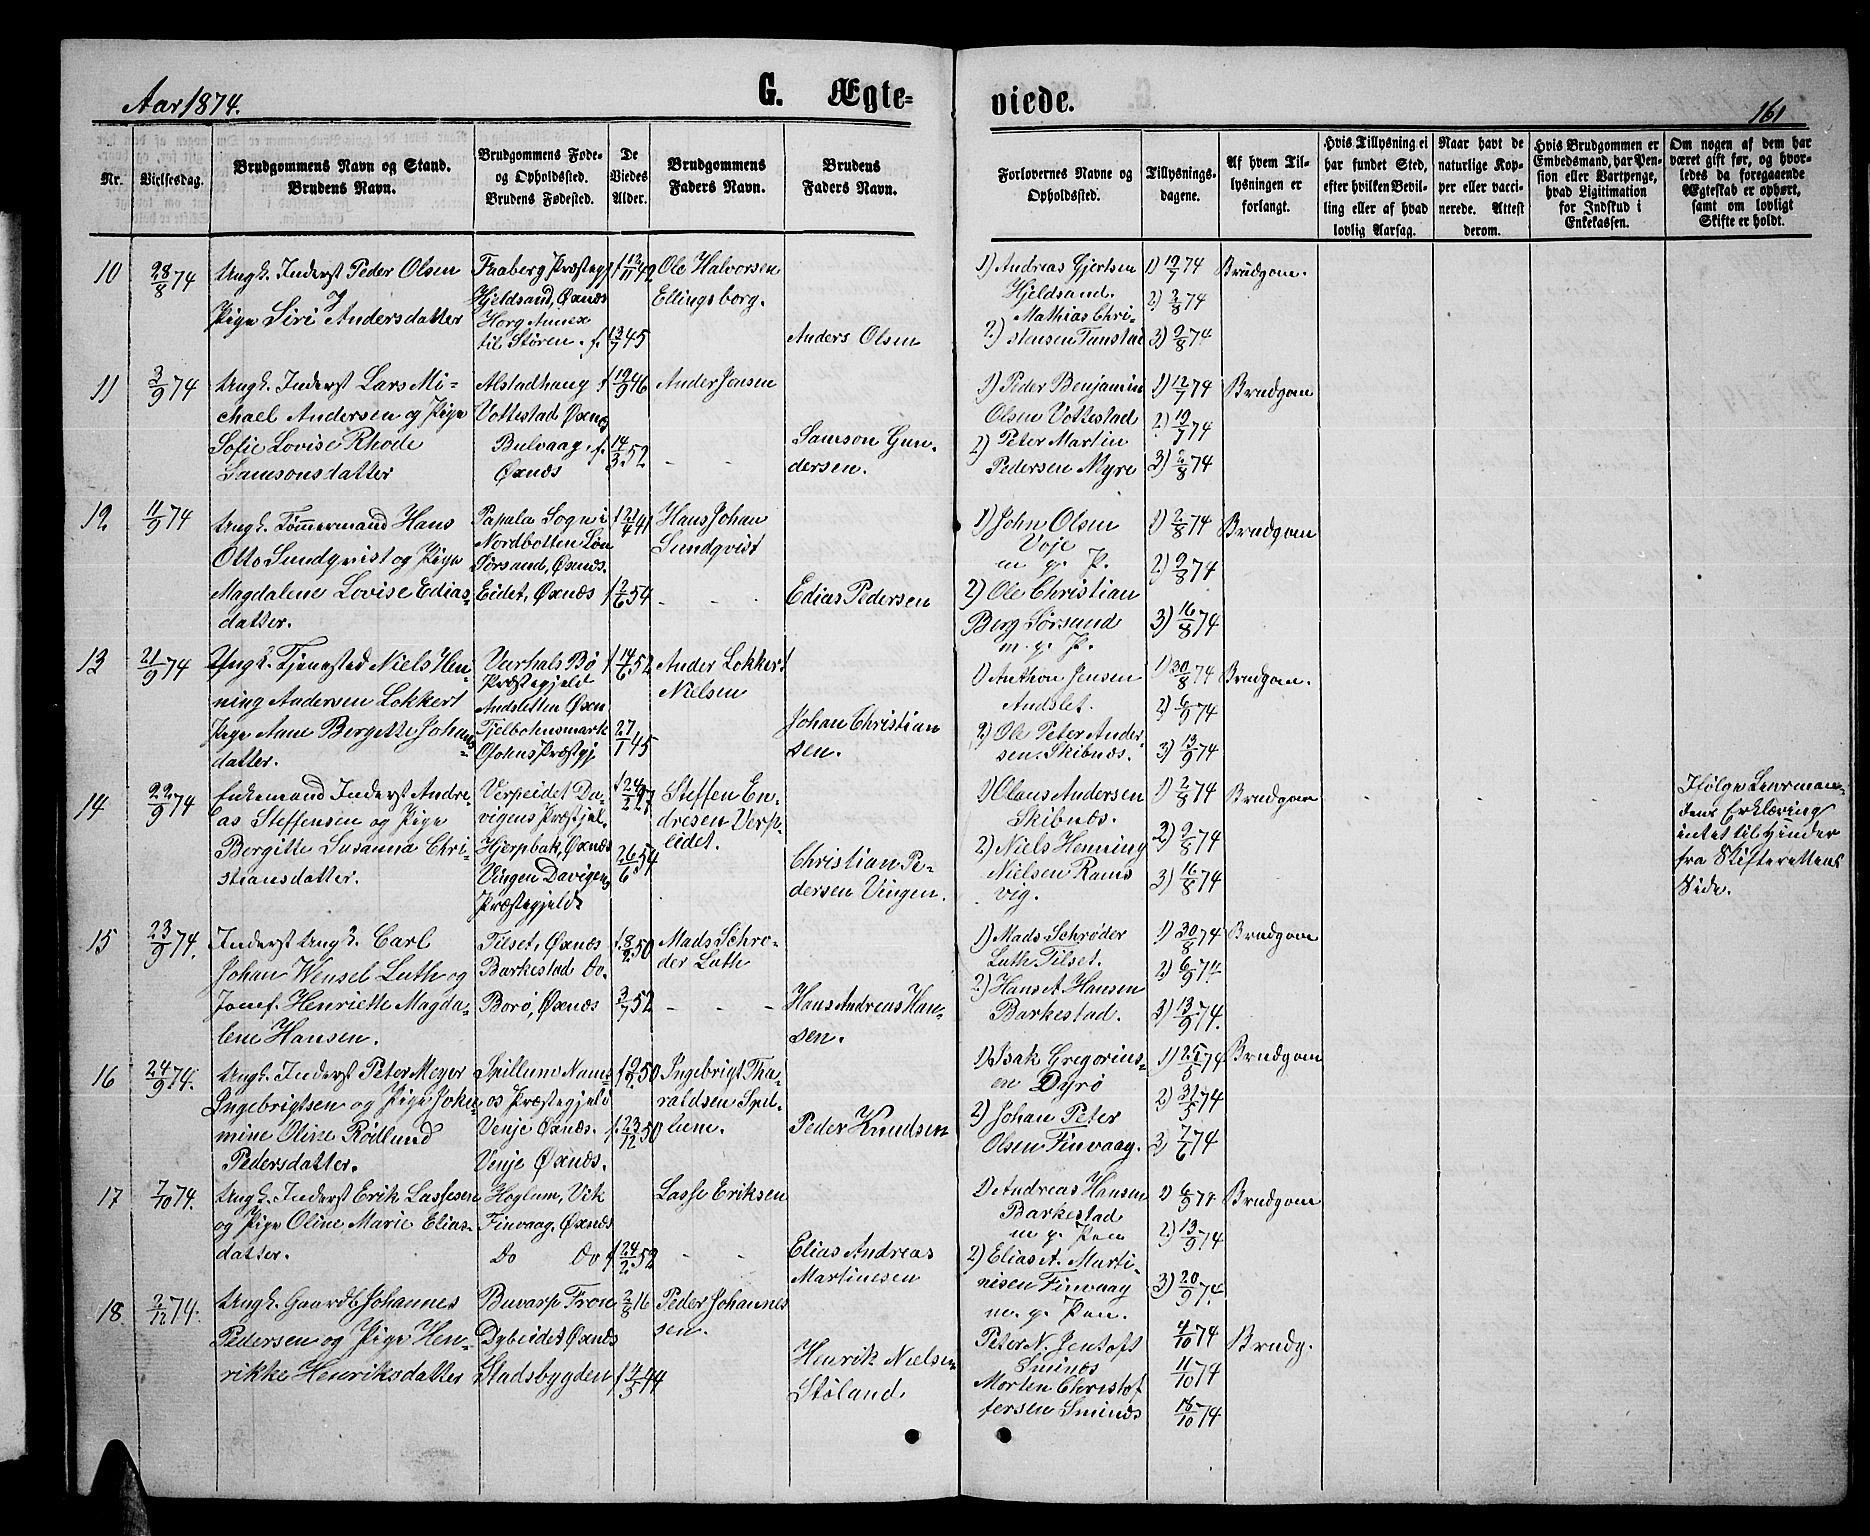 Aar 1874.
G. Ægteviede.
161
Nr.
Vielsesdag.
Brudgommens Navn og Stand.
Brudens Navn.
Brudgommens Føde-
og Opholdssted.
Brudens Fødested.
De
Viedes
Alder.
Brudgommens
Faders Navn.
Brudens
Faders Navn.
Forlovernes Navne og
Opholdssted.
Tillysnings-
dagene.
Af hvem Til-
lysningen er
forlangt.
Hvis Tillysning ei
har fundet Sted,
efter hvilken Bevil-
ling eller af hvad
lovlig Aarsag.
Naar havt de
naturlige Kop-
per eller vacci-
nerede. Attest
derom.
Hvis Brudgommen er
Embedsmand, har Pen-
sion eller Vartpenge,
hvad Legitimation
for Indskud i
Enkekassen.
Om nogen af dem har
været gift før, og hvor-
ledes da foregaaende
Ægteskab er ophørt,
samt om lovligt
Skifte er holdt.
10
28/8 74
Ungk. Inderst Peder Olsen
Pige Siri Andersdatter
Faaberg Præstegj
Hjeldsand, Øxnæs
Horg Annex
til Støren.
f 12/11 42
f. 13/7 45
Ole Halvorsen
Ellingsborg.
Anders Olsen
1) Andreas Gjertsen
Hjeldsand.
Mathias Chri-
2) stensen Tunstad
1) 19/7 74
2) 2/8 74
3) 9/8 74
Brudgom.
11
3/9 74
Ungk. Inderst Lars Mi-
chael Andersen og Pige
Sofie Lovise Rhode
Samsonsdatter
Alstadhaug
Vottestad Øxnæs
Bulvaag,
Øxnæs
f 19/9 46
f. 14/3 52
Ander Jensen
- -
Samson Gun-
dersen.
1) Peder Benjamin
Olsen Vottestad
2) Peter Martin
Pedersen Myre
1) 12/7 74
2) 19/7 74
3) 2/8 74
Brudgom
12
11/9 74
Ungk. Tømmermand Hans
Otto Sundqvist og Pige
Magdalene Lovise Edias-
datter.
Papala Sogn i
Nordbotten Lön
Sörsand, Øxnæs.
Eidet, Øxnæs
f 21/4 41
f 2/6 54
Hans Johan
Sundqvist
- -
Edias Pedersen
1) John Olsen
Voje
m. p. P.
2) Ole Christian
Berg Sørsand
m. p. P.
1) 2/8 74
2) 9/8 74
3) 16/8 74
Brudgom
13
21/9 74
Ungk. Tjenested Niels Hen-
ning Andersen Lokkert
Pige Ane Bergitte Johans-
datter.
Vaarhals Bø
Præstegjeld
Andsletten Øxn
Tjelbohnsmark
Ofohns Præstgj
f 14/6 52
27/1 45
Ander Lokkert
Nielsen
Johan Christian
sen.
1) Anthon Jensen
Andslet.
2) Ole Peter Ander-
sen. Skibnæs.
1) 30/8 74
2) 6/9 74
3) 13/9 74
Brudgom.
14
22/9 74
Enkemand Inderst Andre-
as Steffensen og Pige
Bergitte Susanna Chri-
stiansdatter.
Verpeidet Da-
vigens Præstjel.
Hjerpbak, Øxnæs
Vingen Davigens
Præstegjeld
f. 24/2 27
26/6 54
Steffen En-
dresen Verp-
eidet.
Christian Pe-
dersen Vingen.
1) Olaus Andersen
Skibnæs.
2) Niels Henning
Nielsen Rams
vig.
1) 2/8 74
2) 9/8 74
3) 16/8 74
Brudgom
Ifølge Lensman-
dens Erklæring
intet til Hinder
fra Skifterettens
Side.
15
23/9 74.
Inderst Ungk. Carl
Johan Wensel Luth og
Jomf. Henriette Magda-
lene Hansen.
Tilset, Øxnæs
Barkestad Do.
Borø, Øxnæs
f. 8/2 50
3/7 52
Mads Schrø-
der Luth
- - -
Hans Andreas Han-
sen.
1) Mads Schrøder
Luth Tilset.
2) Hans A. Hansen
Barkestad.
1) 30/8 74
2) 6/9 74.
3) 13/9 74.
Brudgom
16
24/9 74.
Ungk. Inderst Peter Meyer
Ingebrigtsen og Pige Joha-
mine Oline Rödlund
Pedersdatter.
Spillum Nams-
os Præstegjeld
Venje Øxnæs.
Venje Øxnæs.
f 50
f. 23/12 50
Ingebrigt Tha-
raldsen Spil-
lum.
Peder Knudsen
1) Isak Gregorius-
en Dyrø
2) Johan Peter
Olsen Finvaag.
1) 25/5 74
2) 31/5 74
3) 7/6 74
Brudgom
17
7/10 74.
Ungk. Inderst Erik Lassesen
og Pige Oline Marie Elias-
datter.
Höglum, Vik
Finvaag, Øxnæs
Do Do
f 24/2 52
Lasse Eriksen
- -
Elias Andreas
Martinesen
1) Andreas Hansen
Barkestad
m. p. Pen
2) Elias A. Marti-
nesen Finvaag
m. p. Pen.
1) 6/9 74
2) 13/9 74
3) 20/9 74.
Brudgom
18.
2/12 74.
Ungk. Gaardb. Johannes
Pedersen og Pige Hen-
rikke Henriksdatter
Buvarp Fron
Dybeidet Øxnæs
Stadsbygden
2/8 16
f 4/3 44
Peder Johannes
sen.
Henrik Nielsen
Støland.
Peter N. Jentoft
Sminæs
Morten Christof
fersen Sminæs
4/10 74
11/10 74
18/10 74
Brudg.